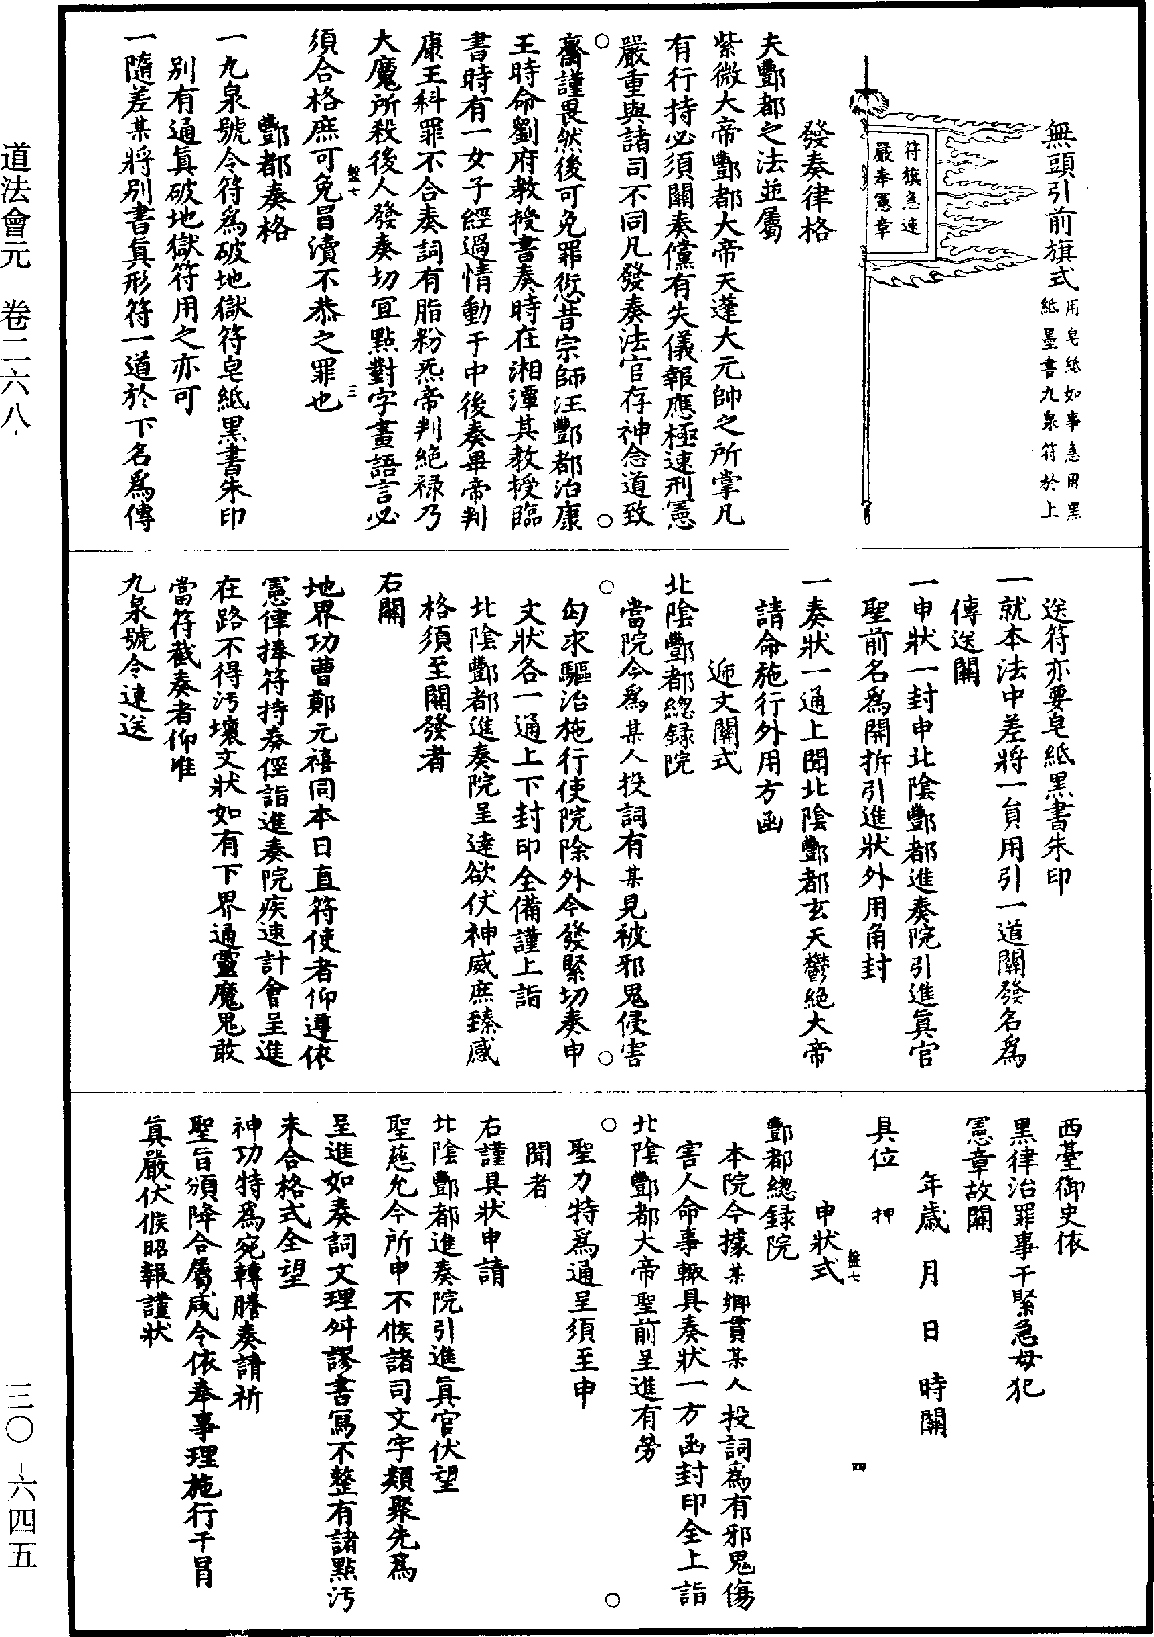 無頭引前旗式用皂紙如事急用黑紙墨書九泉符於上
符旗急速
嚴奉憲章
發奏律格
夫酆都之法並屬
紫微大帝酆都大帝天蓬大元帥之所掌凡
有行持必須關奏儻有失儀報應極速刑憲
嚴重與諸司不同凡發奏法官存神念道致
齋謹畏然後可免罪愆昔宗師汪酆都治康
王時命劉府教授書奏時在湘潭其教授臨
書時有一女子經過情動于中後奏畢帝判
康王科罪不合奏詞有脂粉炁帝判絕祿乃
大魔所殺後人發奏切宜點對字畫語言必
須合格庶可免冒瀆不恭之罪也
盤七
三
酆都奏格
一九泉號令符為破地獄符皂紙黑書朱印
別有通眞破地獄符用之亦可
一隨差某將別書眞形符一道於下名為傳
送符亦要皂紙黑書朱印
一就本法中差將一員用引一道關發名為
傳送關
一申狀一封申北陰酆都進奏院引進眞官
聖前名為開拆引進狀外用角封
一奏狀一通上聞北陰酆都玄天鬱絕大帝
請命施行外用方函
遞文關式
北陰酆都總録院
當院今為某人投詞有某見被邪鬼侵害
勾求驅治施行使院除外今發緊切奏申
文狀各一通上下封印全備謹上詣
北陰酆都進奏院呈達欲仗神威庶臻感
格須至關發者
右關
地界功曹鄭元禧同本日直符使者仰遵依
憲律捧符持奏徑詣進奏院疾速計會呈進
在路不得污壞文狀如有下界通靈魔鬼敢
當符截奏者仰准
九泉號令速送
西臺御史依
黑律治罪事干緊急毋犯
憲章故關
年歲 月 日 時關
具位 押
盤七
四
申狀式
酆都總録院
本院今據某鄉貫某人投詞為有邪鬼傷
害人命事輒具奏狀一方函封印全上詣
北陰酆都大帝聖前呈進有勞
聖力特為通呈須至申
聞者
右謹具狀申請
北陰酆都進奏院引進眞官伏望
聖慈允今所申不候諸司文字類聚先為
呈進如奏詞文理舛謬書寫不整有諸點污
未合格式全望
神功特為宛轉謄奏請祈
聖旨頒降合屬咸令依奉事理施行干冒
眞嚴伏候昭報謹狀
道法會元 卷二六八
三〇-六四五